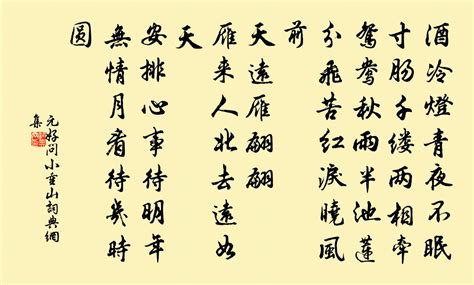 酒冷燈青夜不眠
寸腸千縷兩相牽
鴛鴦秋雨半池蓮
分飛苦紅淚曉風
前
天遠雁翩翩
雁來人北去遠如
天
安排心事待明年
無情月看待幾時
圓
元好問小重山詞典網
集